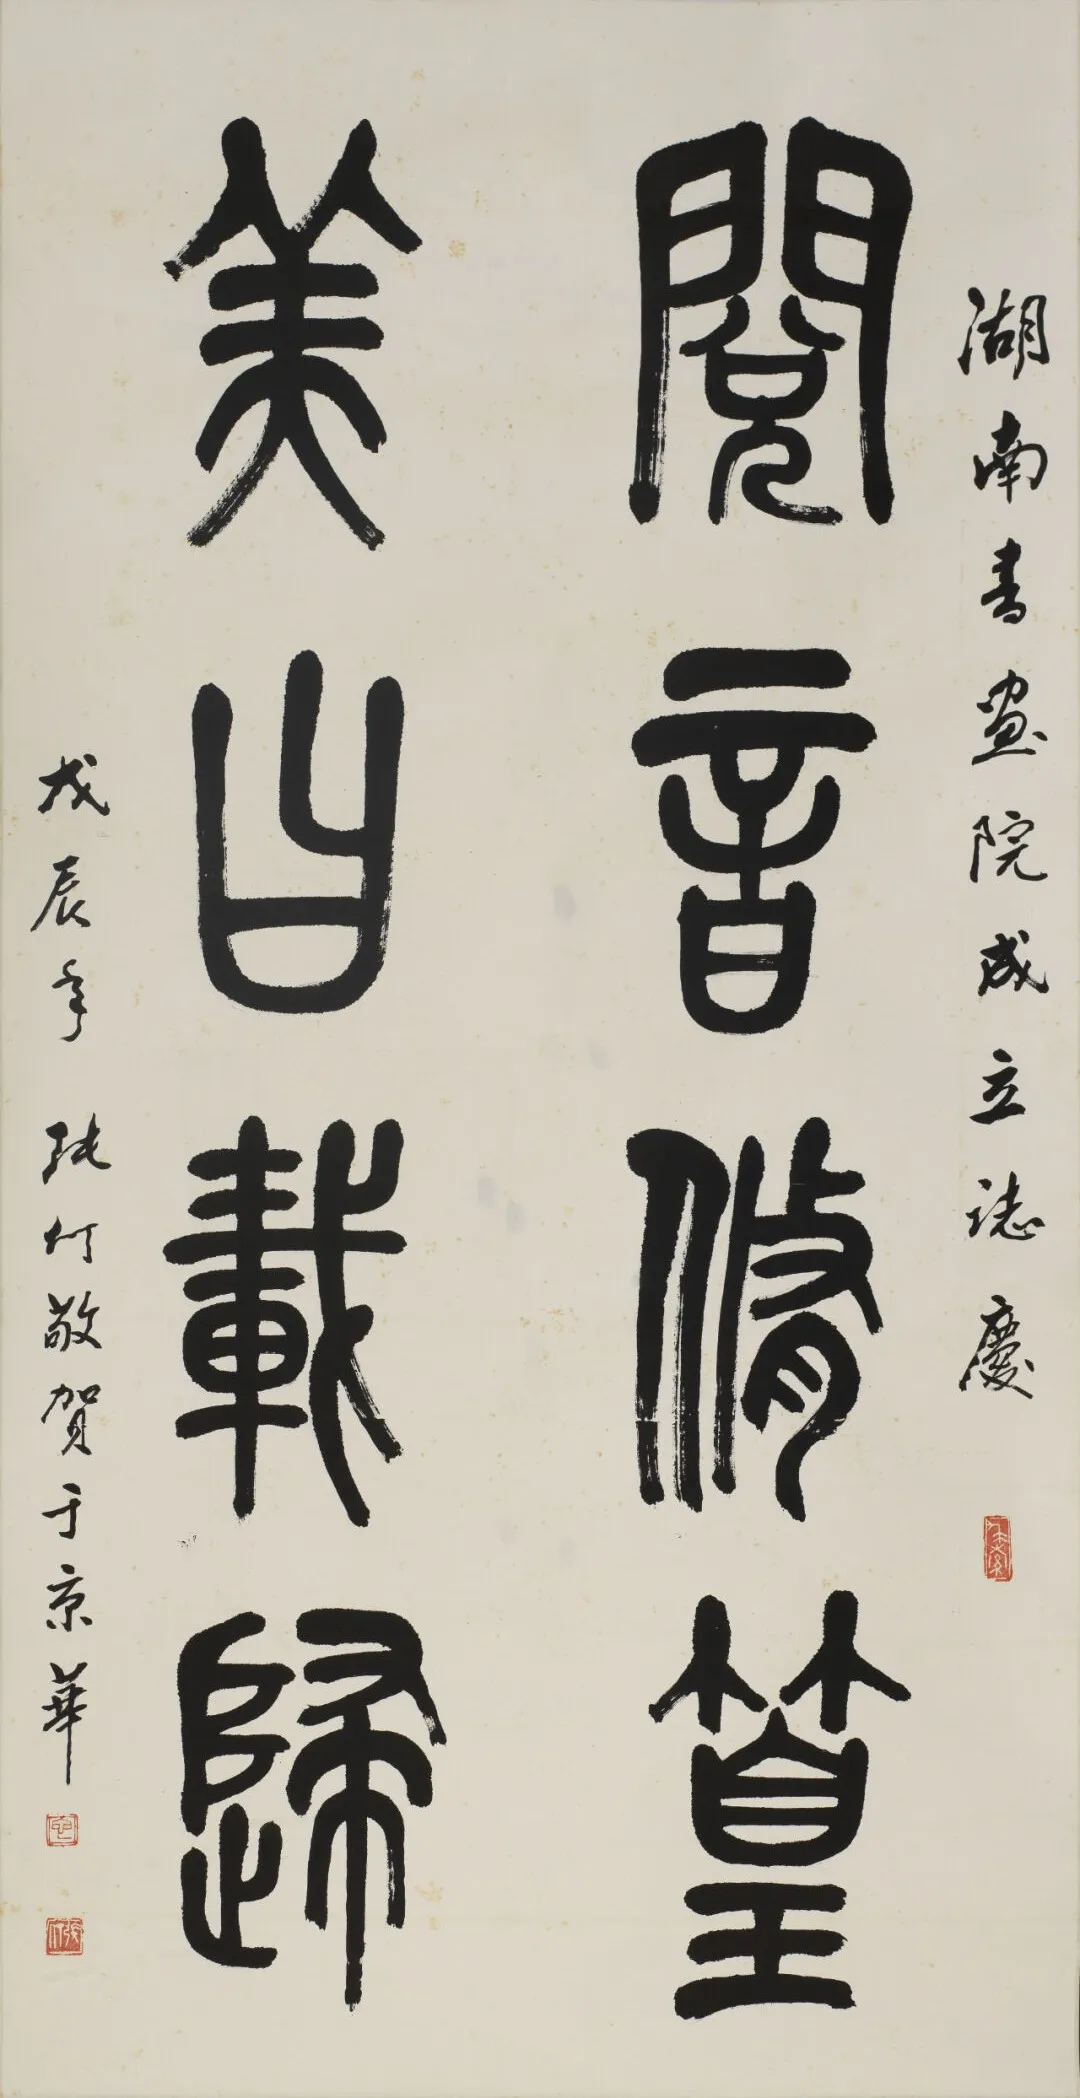 湖南書畫院成立誌慶
閱音脩篁
美曰載歸
戊辰年 張仃敬賀于京華